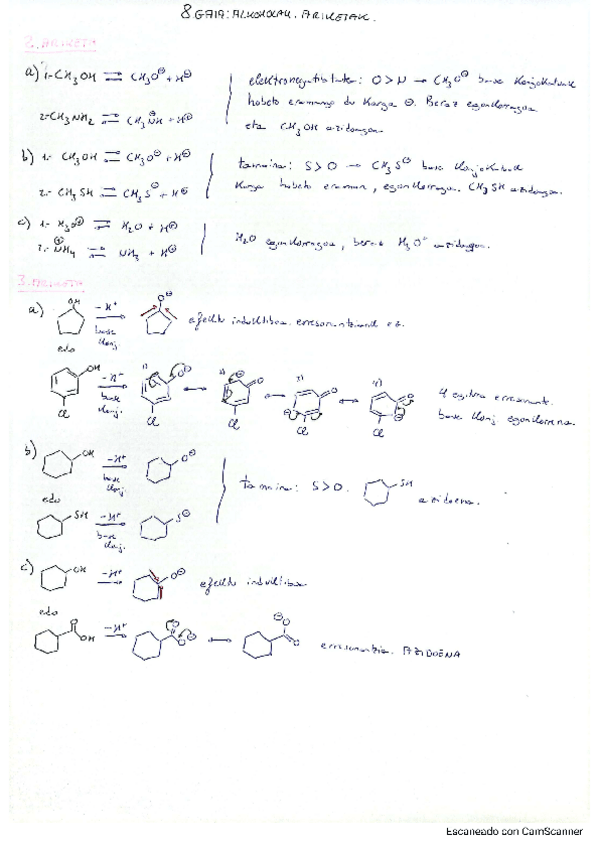 8 GAIA: ALKOHOLAK. ARIKETAK.
2. ARIKETA
a) 1.- CH₃OH ⇌ CH₃O⊖ + H⊕
elektronegatibitatea: O > N → CH₃O⊖ base konjokatuak
hobeto eramango du karga ⊖. Beraz egonkorragoa
2.- CH₃NH₂ ⇌ CH₃NH⊖ + H⊕
eta CH₃OH azidoagoa.
b) 1.- CH₃OH ⇌ CH₃O⊖ + H⊕
tamaina: S > O → CH₃S⊖ base konjokatuak
2.- CH₃SH ⇌ CH₃S⊖ + H⊕
karga hobeto eraman, egonkorragoa. CH₃SH azidoagoa.
c) 1.- H₃O⊕ ⇌ H₂O + H⊕
2.- ⊕NH₄ ⇌ NH₃ + H⊕
H₂O egonkorragoa, beraz H₃O⁺ azidoagoa.
3. ARIKETA
a) OH -H⁺ base konj. O⊖ efektu induktiboa. erresonantziarik ez.
edo
OH Cl -H⁺ base konj. 1) O⊖ Cl ↔ 2) O Cl ↔ 3) O Cl ↔ 4) O Cl
4 egitura erresonante.
base konj egonkorrena.
b) OH -H⁺ base konj. O⊖
tamaina: S > O. SH azidoena.
edo
SH -H⁺ base konj. S⊖
c) OH -H⁺ O⊖ efektu induktiboa
edo
O OH -H⁺ O O⊖ ↔ O⊖ O erresonantzia. AZIDOENA
Escaneado con CamScanner